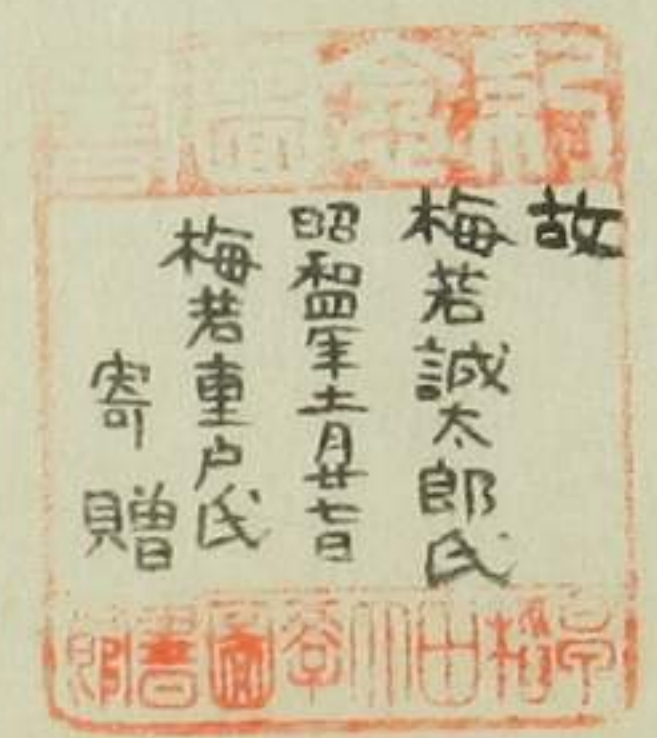 故
梅若誠太郎氏
昭和四年十一月廿七日
梅若重戸氏
寄贈
谷圖書館